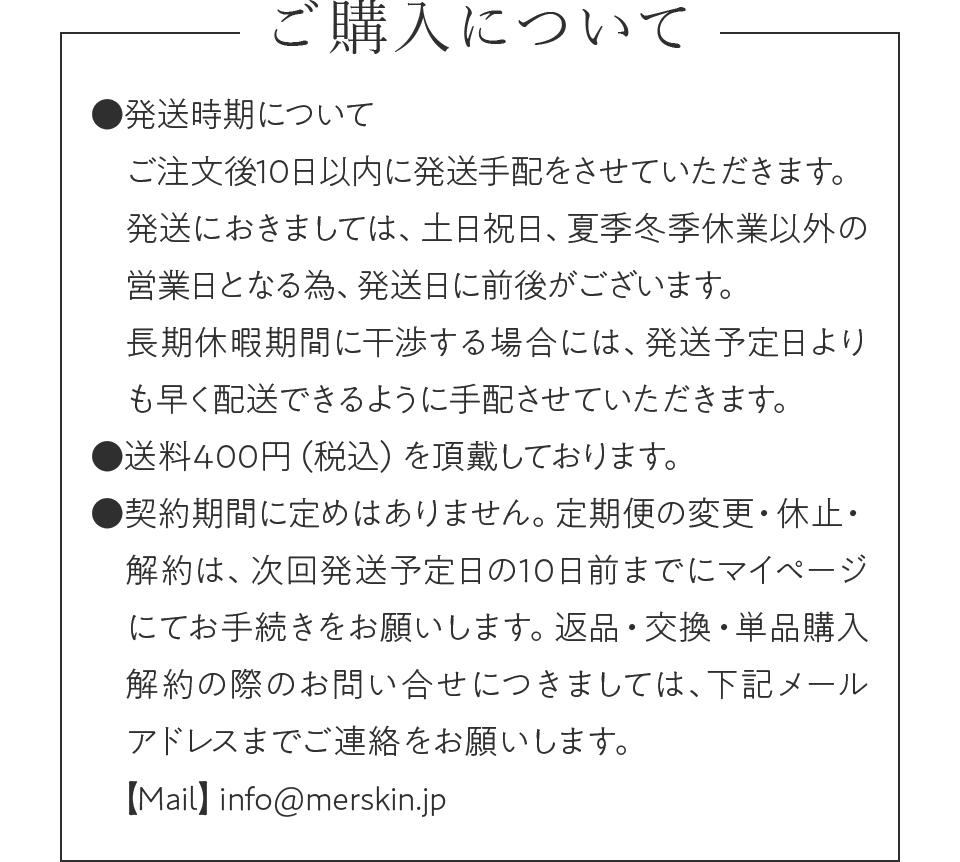 ご購入について
●発送時期について
ご注文後10日以内に発送手配をさせていただきます。
発送におきましては、土日祝日、夏季冬季休業以外の
営業日となる為、発送日に前後がございます。
長期休暇期間に干渉する場合には、発送予定日より
も早く配送できるように手配させていただきます。
●送料400円（税込）を頂戴しております。
●契約期間に定めはありません。定期便の変更・休止・
解約は、次回発送予定日の10日前までにマイページ
にてお手続きをお願いします。返品・交換・単品購入
解約の際のお問い合せにつきましては、下記メール
アドレスまでご連絡をお願いします。
【Mail】info@merskin.jp